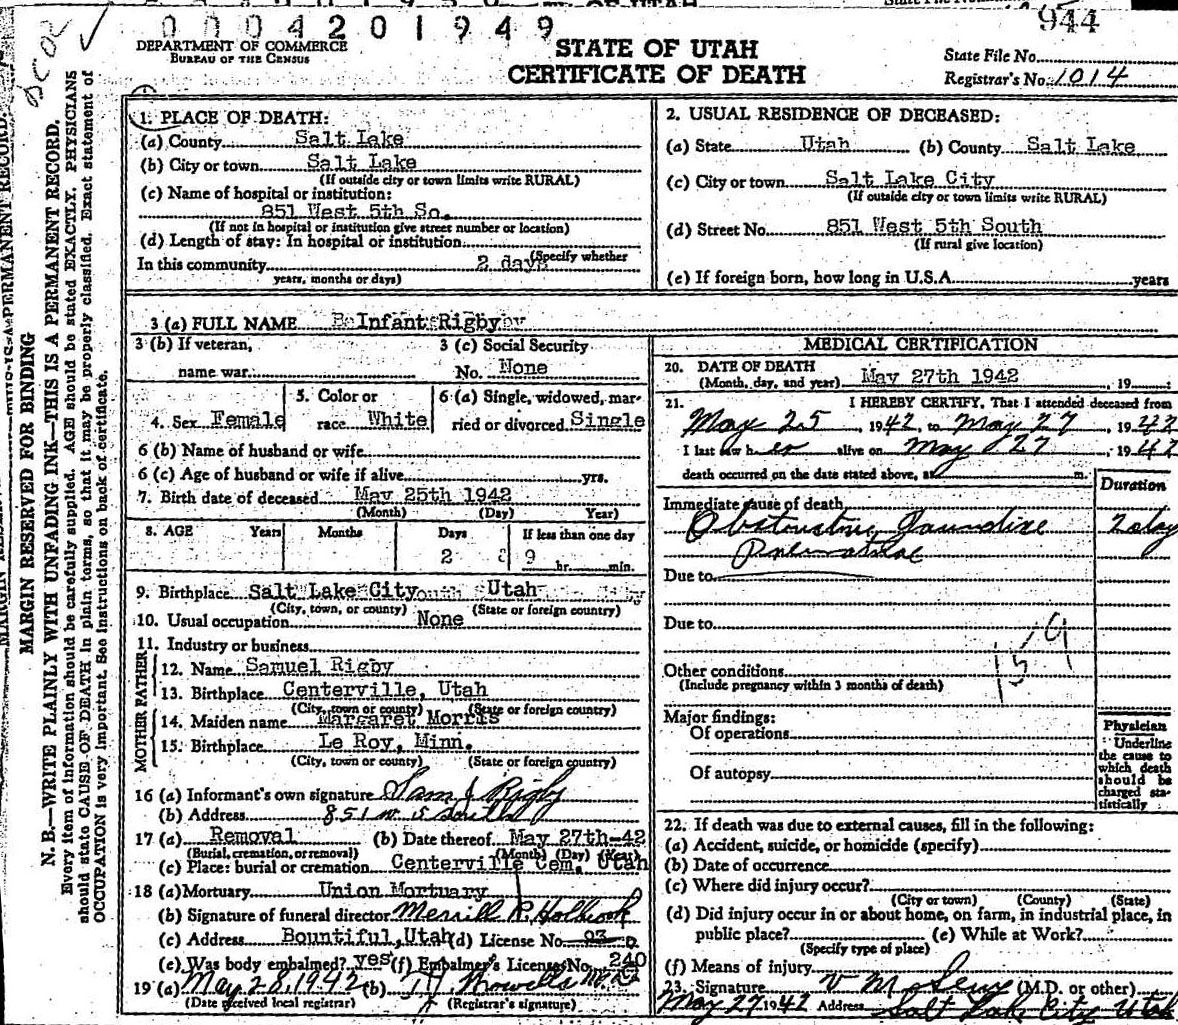 0004201949
944
DEPARTMENT OF COMMERCE
BUREAU OF THE CENSUS
STATE OF UTAH
CERTIFICATE OF DEATH
State File No.
Registrar's No. 1014
MARGIN RESERVED FOR BINDING
N. B.—WRITE PLAINLY WITH UNFADING INK—THIS IS A PERMANENT RECORD.
Every item of information should be carefully supplied. AGE should be stated EXACTLY. PHYSICIANS
should state CAUSE OF DEATH in plain terms, so that it may be properly classified. Exact statement of
OCCUPATION is very important. See instructions on back of certificate.
1. PLACE OF DEATH:
(a) County Salt Lake
(b) City or town Salt Lake
(If outside city or town limits write RURAL)
(c) Name of hospital or institution:
851 West 5th So.
(If not in hospital or institution give street number or location)
(d) Length of stay: In hospital or institution
(Specify whether
In this community 2 days
years, months or days)
2. USUAL RESIDENCE OF DECEASED:
(a) State Utah (b) County Salt Lake
(c) City or town Salt Lake City
(If outside city or town limits write RURAL)
(d) Street No. 851 West 5th South
(If rural give location)
(e) If foreign born, how long in U.S.A. years
3 (a) FULL NAME Infant Rigby
3 (b) If veteran,
name war
3 (c) Social Security
No. None
4. Sex Female
5. Color or
race White
6 (a) Single, widowed, mar-
ried or divorced Single
6 (b) Name of husband or wife
6 (c) Age of husband or wife if alive yrs.
7. Birth date of deceased May 25th 1942
(Month) (Day) Year)
8. AGE Years Months Days If less than one day
2 9 hr. min.
9. Birthplace Salt Lake City Utah
(City, town, or county) (State or foreign country)
10. Usual occupation None
11. Industry or business
FATHER
12. Name Samuel Rigby
13. Birthplace Centerville, Utah
(City, town or county) (State or foreign country)
MOTHER
14. Maiden name Margaret Morris
15. Birthplace Le Roy, Minn.
(City, town or county) (State or foreign country)
16 (a) Informant's own signature Sam J Rigby
(b) Address 851 W. 5 South
17 (a) Removal (b) Date thereof May 27th-42
(Burial, cremation, or removal) (Month) (Day) (Year)
(c) Place: burial or cremation Centerville Cem. Utah
18 (a) Mortuary Union Mortuary
(b) Signature of funeral director Merrill R. Holbrook
(c) Address Bountiful, Utah (d) License No.
(e) Was body embalmed? yes (f) Embalmer's License No. 240
19 (a) May 28, 1942 (b)
(Date received local registrar) (Registrar's signature)
MEDICAL CERTIFICATION
20. DATE OF DEATH
(Month, day, and year) May 27th 1942, 19
21. I HEREBY CERTIFY, That I attended deceased from
May 25, 1942, to May 27, 1942
I last saw her alive on May 27, 1942
death occurred on the date stated above, at m.
Duration
Immediate cause of death
Obstructive Jaundice 2 day
Premature
Due to
Due to
159
Other conditions
(Include pregnancy within 3 months of death)
Major findings:
Of operations
Of autopsy
Physician
Underline
the cause to
which death
should be
charged sta-
tistically
22. If death was due to external causes, fill in the following:
(a) Accident, suicide, or homicide (specify)
(b) Date of occurrence
(c) Where did injury occur?
(City or town) (County) (State)
(d) Did injury occur in or about home, on farm, in industrial place, in
public place? (e) While at Work?
(Specify type of place)
(f) Means of injury
23. Signature (M.D. or other)
May 27 1942 Address Salt Lake City Utah